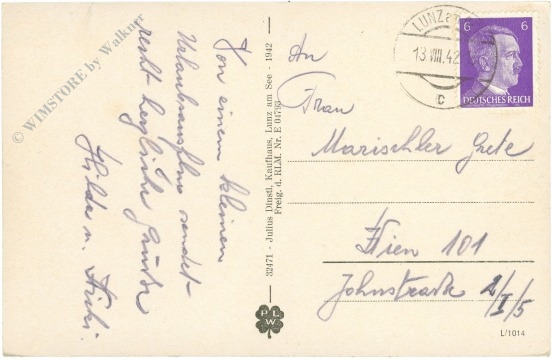 © WIMSTORE by Walkner
Von einem kleinen
Urlaubsausflug sendet
recht herzliche Grüße
Hilde u.
32471 - Julius Dinstl, Kaufhaus, Lunz am See - 1942 -
Freig. d. RLM. Nr. E 04793
PLW
LUNZ a
13.VIII.42
C
6 6
DEUTSCHES REICH
An
Frau
Marischler Grete
Wien 101
Johnstraße 2/I/5
L/1014